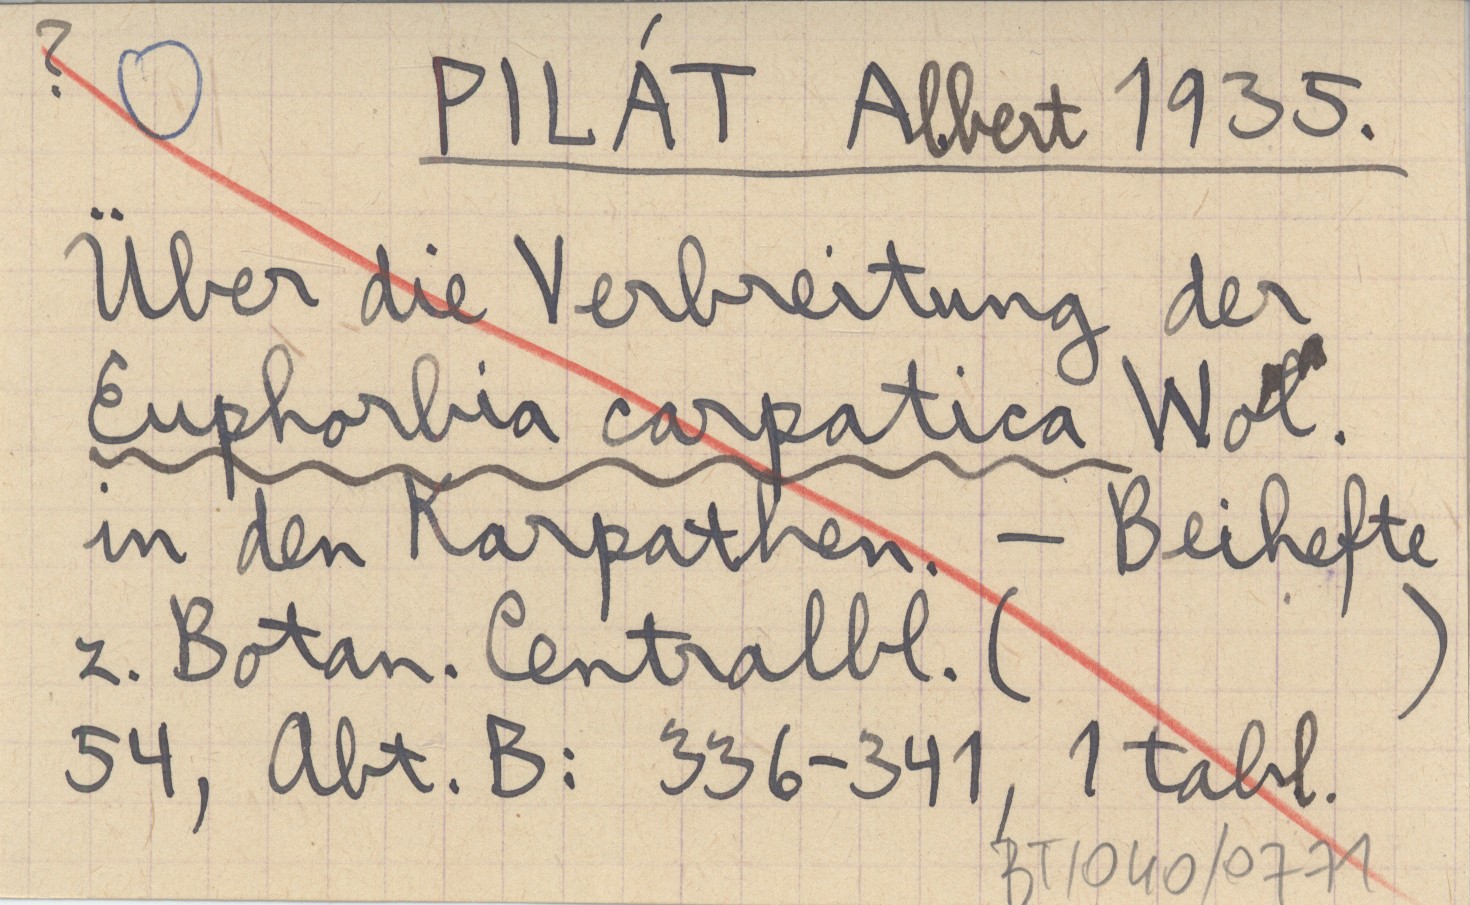 ?
PILÁT Albert 1935.
Über die Verbreitung der
Euphorbia carpatica Woł.
in den Karpathen. – Beihefte
z. Botan. Centralbl. ( )
54, Abt. B: 336-341, 1 tabl.
BT/040/0771